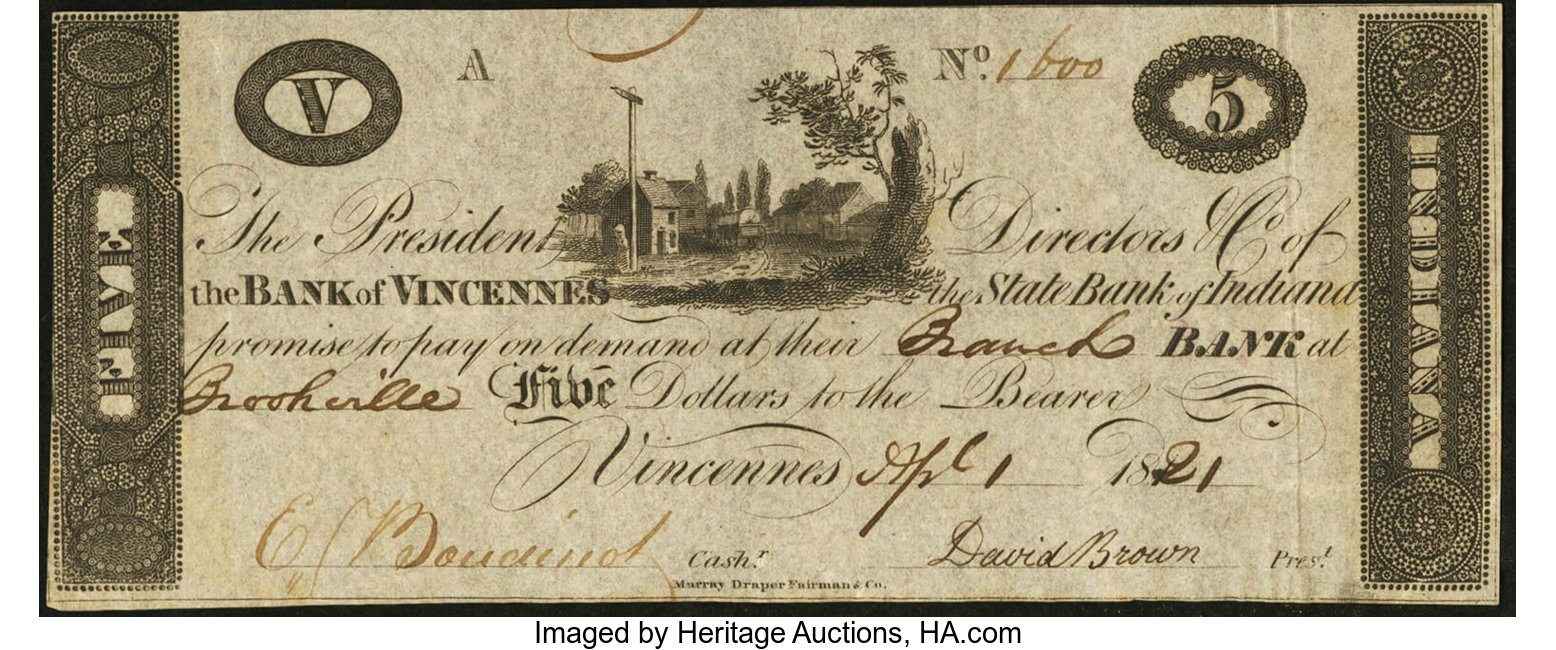 V A No. 1600 5
FIVE
The President Directors & Co of
the BANK of VINCENNES the State Bank of Indiana
promise to pay on demand at their Branch BANK at
Brookville Five Dollars to the Bearer
Vincennes Apl 1 1821
E Boudinot Cash.r David Brown Pres.t
Murray Draper Fairman & Co.
INDIANA
Imaged by Heritage Auctions, HA.com